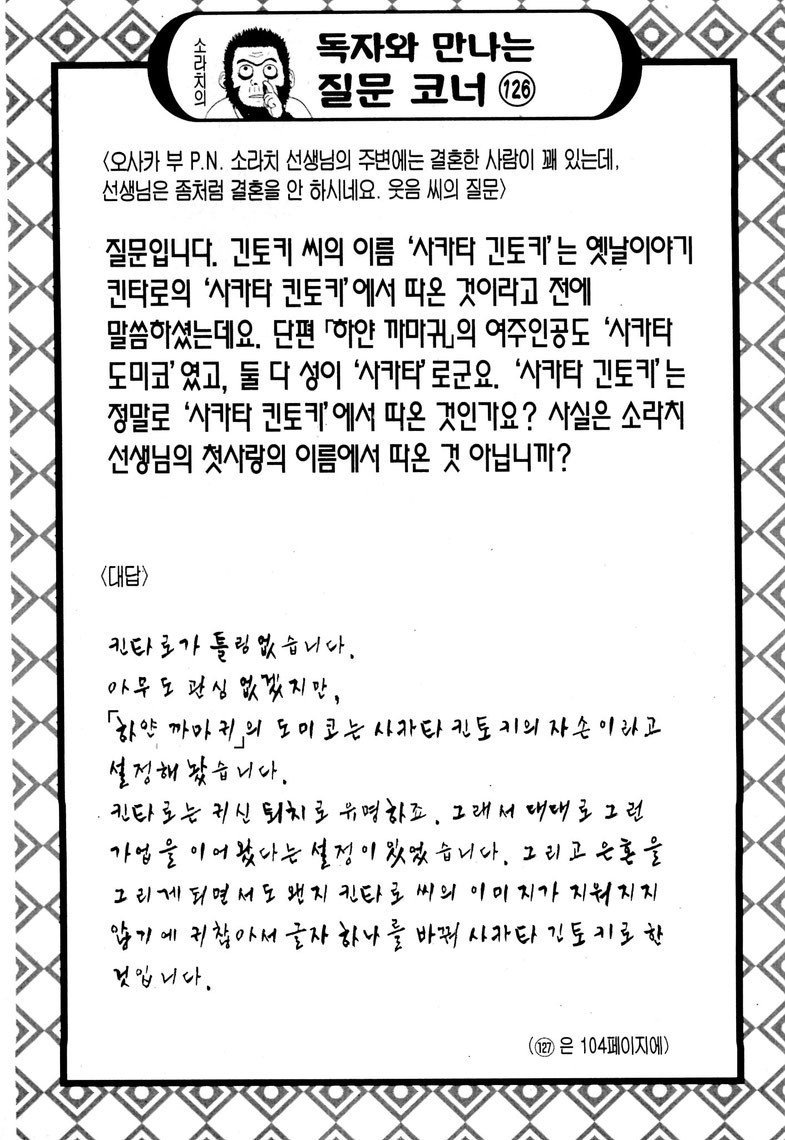 소라치의
독자와 만나는
질문 코너 126
〈오사카 부 P.N. 소라치 선생님의 주변에는 결혼한 사람이 꽤 있는데,
선생님은 좀처럼 결혼을 안 하시네요. 웃음 씨의 질문〉
질문입니다. 긴토키 씨의 이름 ‘사카타 긴토키’는 옛날이야기
킨타로의 ‘사카타 킨토키’에서 따온 것이라고 전에
말씀하셨는데요. 단편 「하얀 까마귀」의 여주인공도 ‘사카타
도미코’였고, 둘 다 성이 ‘사카타’로군요. ‘사카타 긴토키’는
정말로 ‘사카타 킨토키’에서 따온 것인가요? 사실은 소라치
선생님의 첫사랑의 이름에서 따온 것 아닙니까?
〈대답〉
킨타로가 틀림없습니다.
아무도 관심 없겠지만,
「하얀 까마귀」의 도미코는 사카타 킨토키의 자손이라고
설정해 놨습니다.
킨타로는 귀신 퇴치로 유명하죠. 그래서 대대로 그런
가업을 이어왔다는 설정이 있었습니다. 그리고 은혼을
그리게 되면서도 왠지 킨타로 씨의 이미지가 지워지지
않기에 귀찮아서 글자 하나를 바꿔 사카타 긴토키로 한
것입니다.
(127 은 104페이지에)